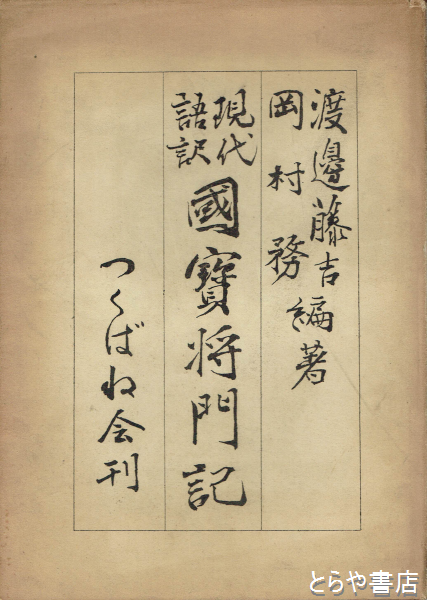 渡邊藤吉
岡村務
編著
現代
語訳
國寶将門記
つくばね会刊
とらや書店